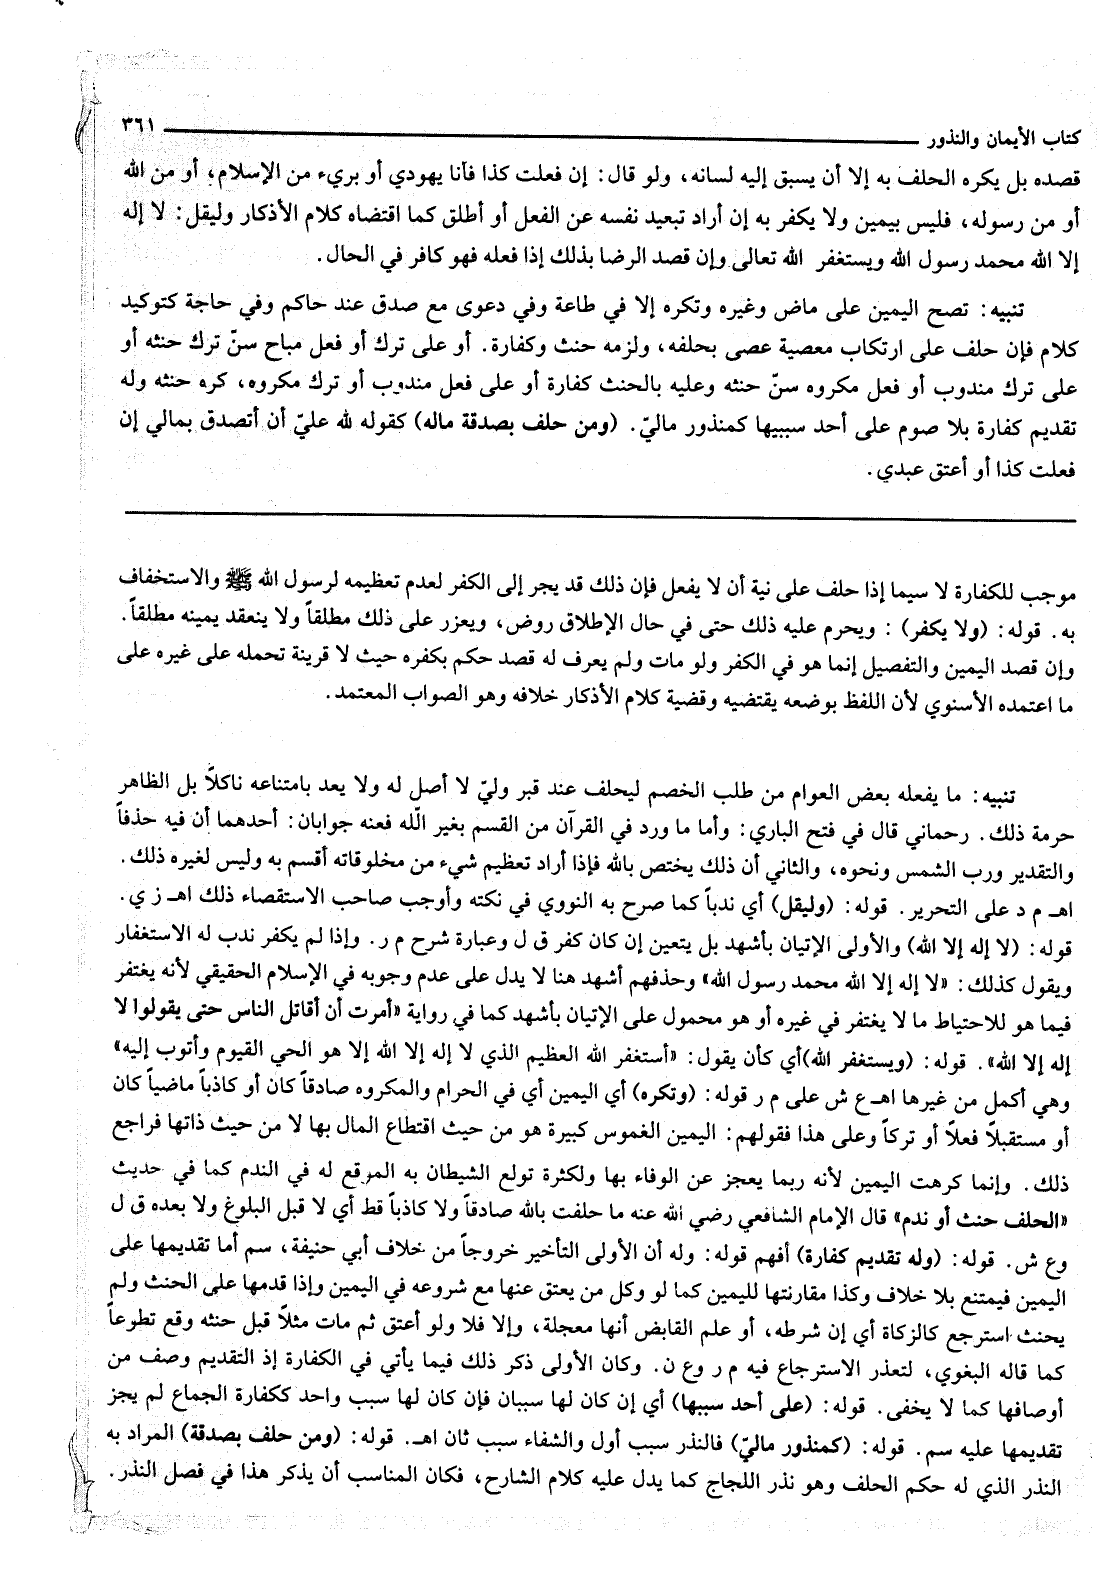 كتاب الأيمان والنذور
٣٦١
قصده بل يكره الحلف به إلا أن يسبق إليه لسانه، ولو قال: إن فعلت كذا فأنا يهودي أو بريء من الإسلام، أو من الله
أو من رسوله، فليس بيمين ولا يكفر به إن أراد تبعيد نفسه عن الفعل أو أطلق كما اقتضاه كلام الأذكار وليقل: لا إله
إلا الله محمد رسول الله ويستغفر الله تعالى وإن قصد الرضا بذلك إذا فعله فهو كافر في الحال.
تنبيه: تصح اليمين على ماض وغيره وتكره إلا في طاعة وفي دعوى مع صدق عند حاكم وفي حاجة كتوكيد
كلام فإن حلف على ارتكاب معصية عصى بحلفه، ولزمه حنث وكفارة. أو على ترك أو فعل مباح سنّ ترك حنثه أو
على ترك مندوب أو فعل مكروه سنّ حنثه وعليه بالحنث كفارة أو على فعل مندوب أو ترك مكروه، كره حنثه وله
تقديم كفارة بلا صوم على أحد سببيها كمنذور ماليّ. (ومن حلف بصدقة ماله) كقوله لله عليّ أن أتصدق بمالي إن
فعلت كذا أو أعتق عبدي.
موجب للكفارة لا سيما إذا حلف على نية أن لا يفعل فإن ذلك قد يجر إلى الكفر لعدم تعظيمه لرسول الله ﷺ والاستخفاف
به. قوله: (ولا يكفر) : ويحرم عليه ذلك حتى في حال الإطلاق روض، ويعزر على ذلك مطلقاً ولا ينعقد يمينه مطلقاً.
وإن قصد اليمين والتفصيل إنما هو في الكفر ولو مات ولم يعرف له قصد حكم بكفره حيث لا قرينة تحمله على غيره على
ما اعتمده الأسنوي لأن اللفظ بوضعه يقتضيه وقضية كلام الأذكار خلافه وهو الصواب المعتمد.
تنبيه: ما يفعله بعض العوام من طلب الخصم ليحلف عند قبر وليّ لا أصل له ولا يعد بامتناعه ناكلاً بل الظاهر
حرمة ذلك. رحماني قال في فتح الباري: وأما ما ورد في القرآن من القسم بغير الله فعنه جوابان: أحدهما أن فيه حذفاً
والتقدير ورب الشمس ونحوه، والثاني أن ذلك يختص بالله فإذا أراد تعظيم شيء من مخلوقاته أقسم به وليس لغيره ذلك.
اهـ م د على التحرير. قوله: (وليقل) أي ندباً كما صرح به النووي في نكته وأوجب صاحب الاستقصاء ذلك اهـ ز ي.
قوله: (لا إله إلا الله) والأولى الإتيان بأشهد بل يتعين إن كان كفر ق ل وعبارة شرح م ر. وإذا لم يكفر ندب له الاستغفار
ويقول كذلك: «لا إله إلا الله محمد رسول الله» وحذفهم أشهد هنا لا يدل على عدم وجوبه في الإسلام الحقيقي لأنه يغتفر
فيما هو للاحتياط ما لا يغتفر في غيره أو هو محمول على الإتيان بأشهد كما في رواية «أمرت أن أقاتل الناس حتى يقولوا لا
إله إلا الله». قوله: (ويستغفر الله)أي كأن يقول: «أستغفر الله العظيم الذي لا إله إلا الله إلا هو الحي القيوم وأتوب إليه»
وهي أكمل من غيرها اهـ ع ش على م ر قوله: (وتكره) أي اليمين أي في الحرام والمكروه صادقاً كان أو كاذباً ماضياً كان
أو مستقبلاً فعلاً أو تركاً وعلى هذا فقولهم: اليمين الغموس كبيرة هو من حيث اقتطاع المال بها لا من حيث ذاتها فراجع
ذلك. وإنما كرهت اليمين لأنه ربما يعجز عن الوفاء بها ولكثرة تولع الشيطان به الموقع له في الندم كما في حديث
«الحلف حنث أو ندم» قال الإمام الشافعي رضي الله عنه ما حلفت بالله صادقاً ولا كاذباً قط أي لا قبل البلوغ ولا بعده ق ل
وع ش. قوله: (وله تقديم كفارة) أفهم قوله: وله أن الأولى التأخير خروجاً من خلاف أبي حنيفة، سم أما تقديمها على
اليمين فيمتنع بلا خلاف وكذا مقارنتها لليمين كما لو وكل من يعتق عنها مع شروعه في اليمين وإذا قدمها على الحنث ولم
يحنث استرجع كالزكاة أي إن شرطه، أو علم القابض أنها معجلة، وإلا فلا ولو أعتق ثم مات مثلاً قبل حنثه وقع تطوعاً
كما قاله البغوي، لتعذر الاسترجاع فيه م ر وع ن. وكان الأولى ذكر ذلك فيما يأتي في الكفارة إذ التقديم وصف من
أوصافها كما لا يخفى. قوله: (على أحد سببها) أي إن كان لها سببان فإن كان لها سبب واحد ككفارة الجماع لم يجز
تقديمها عليه سم. قوله: (كمنذور ماليّ) فالنذر سبب أول والشفاء سبب ثان اهـ. قوله: (ومن حلف بصدقة) المراد به
النذر الذي له حكم الحلف وهو نذر اللجاج كما يدل عليه كلام الشارح، فكان المناسب أن يذكر هذا في فصل النذر.